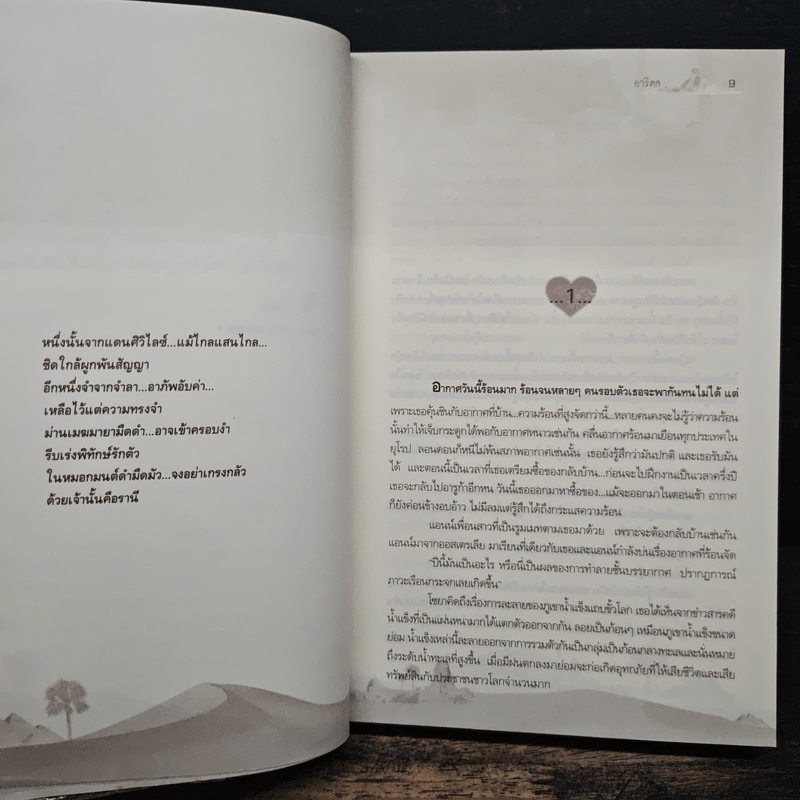 หนึ่งนั้นจากแดนศิวิไลซ์...แม้ไกลแสนไกล...
ชิดใกล้ผูกพันสัญญา
อีกหนึ่งจำจากจำลา...อาภัพอับค่า...
เหลือไว้แต่ความทรงจำ
ม่านเมฆมายามืดดำ...อาจเข้าครอบงำ
รีบเร่งพิทักษ์รักตัว
ในหมอกมนต์ดำมืดมัว...จงอย่าเกรงกลัว
ด้วยเจ้านั้นคือรานี
อาริตา 9
...1...
อากาศวันนี้ร้อนมาก ร้อนจนหลายๆ คนรอบตัวเธอจะพากันทนไม่ได้ แต่
เพราะเธอคุ้นชินกับอากาศที่บ้าน...ความร้อนที่สูงจัดกว่านี้...หลายคนคงจะไม่รู้ว่าความร้อน
นั้นทำให้เจ็บกระดูกได้พอกับอากาศหนาวเช่นกัน คลื่นอากาศร้อนมาเยือนทุกประเทศใน
ยุโรป ลอนดอนก็หนีไม่พ้นสภาพอากาศเช่นนั้น เธอยังรู้สึกว่ามันปกติ และเธอรับมัน
ได้ และตอนนี้เป็นเวลาที่เธอเตรียมซื้อของกลับบ้าน...ก่อนจะไปฝึกงานเป็นเวลาครึ่งปี
เธอจะกลับไปอารูก้าอีกหน วันนี้เธอออกมาหาซื้อของ...แม้จะออกมาในตอนเช้า อากาศ
ก็ยังค่อนข้างอบอ้าว ไม่มีลมแต่รู้สึกได้ถึงกระแสความร้อน
แอนน์เพื่อนสาวที่เป็นรูมเมทตามเธอมาด้วย เพราะจะต้องกลับบ้านเช่นกัน
แอนน์มาจากออสเตรเลีย มาเรียนที่เดียวกับเธอและแอนน์กำลังบ่นเรื่องอากาศที่ร้อนจัด
“ปีนี้มันเป็นอะไร หรือนี่เป็นผลของการทำลายชั้นบรรยากาศ ปรากฏการณ์
ภาวะเรือนกระจกเลยเกิดขึ้น”
โซยาคิดถึงเรื่องการละลายของภูเขาน้ำแข็งแถบขั้วโลก เธอได้เห็นจากข่าวสารคดี
น้ำแข็งที่เป็นแผ่นหนามากได้แตกตัวออกจากกัน ลอยเป็นก้อนๆ เหมือนภูเขาน้ำแข็งขนาด
ย่อม น้ำแข็งเหล่านี้ละลายออกจากการรวมตัวกันเป็นกลุ่มเป็นก้อนกลางทะเลและนั่นหมาย
ถึงระดับน้ำทะเลที่สูงขึ้น เมื่อมีฝนตกลงมาย่อมจะก่อเกิดอุทกภัยที่ให้เสียชีวิตและเสีย
ทรัพย์สินกับประชาชนชาวโลกจำนวนมาก